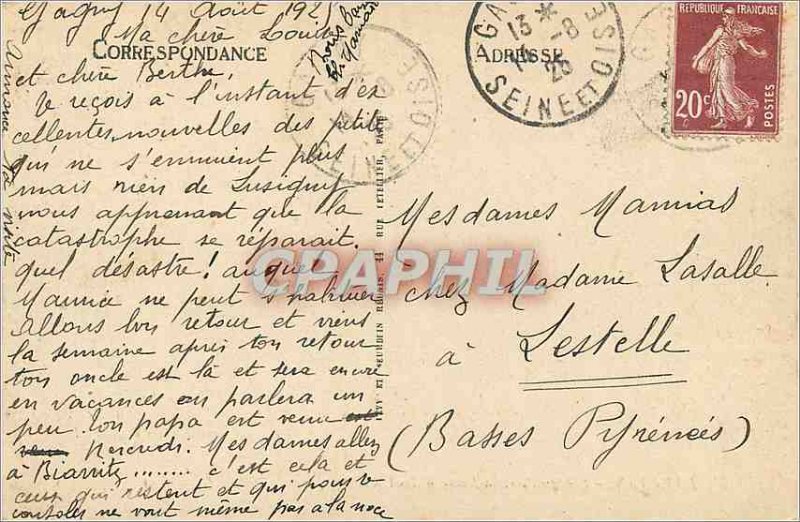 Gagny 14 Août 192
Ma chère Louise
CORRESPONDANCE
et chère Berthe,
Je reçois à l'instant d'ex
cellentes nouvelles des petits
qui ne s'ennuient plus
mais rien de Lusigny
nous apprenant que la
catastrophe se réparait.
quel désastre! auquel
Maurice ne peut s'habituer
Allons bon retour et viens
la semaine après ton retour
ton oncle est là et sera encore
en vacances on parlera un
peu. ton papa est venu
Mercredi. Mesdames allez
à Biarritz........ c'est cela et
ceux qui restent et qui pour se
consoler ne vont même pas à la noce
ADRESSE
GA
13 *
-8
25
SEINE ET OISE
SEINE ET OISE
RÉPUBLIQUE FRANÇAISE
20c
POSTES
Mesdames
chez Madame Lasalle
à Lestelle
(Basses Pyrénées)
LÉVY ET NEURDEIN RÉUNIS, 44 RUE LETELLIER, PARIS
CPAPHIL